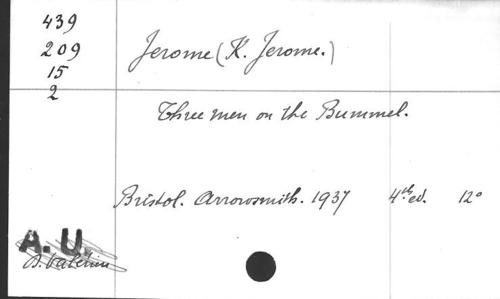 439
209
15
2
Jerome (K. Jerome.)
Three men on the Bummel.
Bristol. Arrowsmith. 1937 4th ed. 12°
A. U.